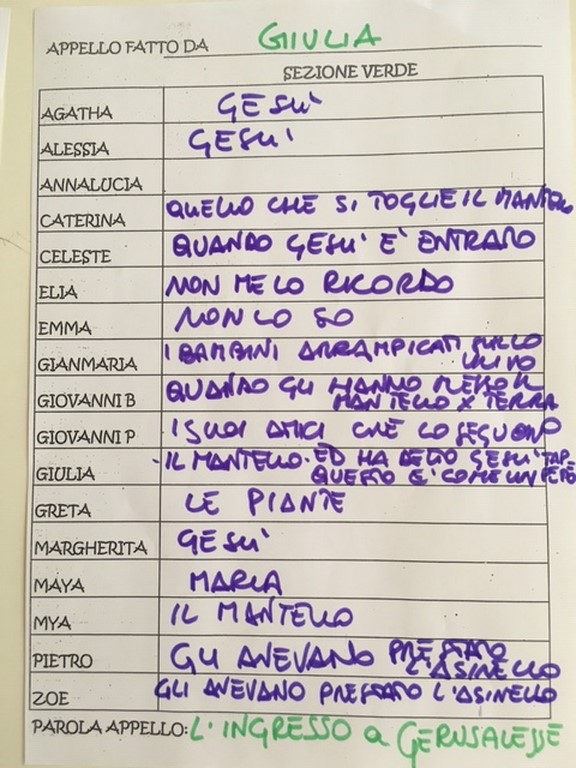 APPELLO FATTO DA GIULIA
SEZIONE VERDE
AGATHA GESU'
ALESSIA GESU'
ANNALUCIA
CATERINA QUELLO CHE SI TOGLIE IL MANTELLO
CELESTE QUANDO GESU' E' ENTRATO
ELIA NON ME LO RICORDO
EMMA NON LO SO
GIANMARIA I BAMBINI ARRAMPICATI SULLO
ULIVO
GIOVANNI B QUANDO GLI HANNO MESSO IL
MANTELLO X TERRA
GIOVANNI P I SUOI AMICI CHE LO SEGUONO
GIULIA -IL MANTELLO. ED HA DETTO GESU'
QUESTO E' COME UN TAPPETO
GRETA LE PIANTE
MARGHERITA GESU'
MAYA MARIA
MYA IL MANTELLO
PIETRO GLI AVEVANO PRESTATO
L'ASINELLO
ZOE GLI AVEVANO PRESTATO L'ASINELLO
PAROLA APPELLO: L'INGRESSO a GERUSALEMME